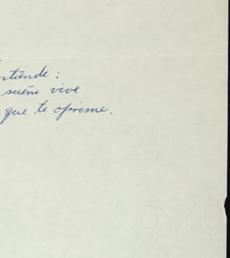 ntiende:
sueño vive
que te oprime.